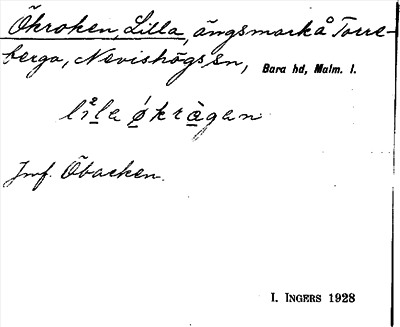 Ökroken Lilla, ängsmark å Torre-
berga, Nevishögs sn, Bara hd, Malm. l.
lila økrågan
Jmf. Öbacken.
I. INGERS 1928